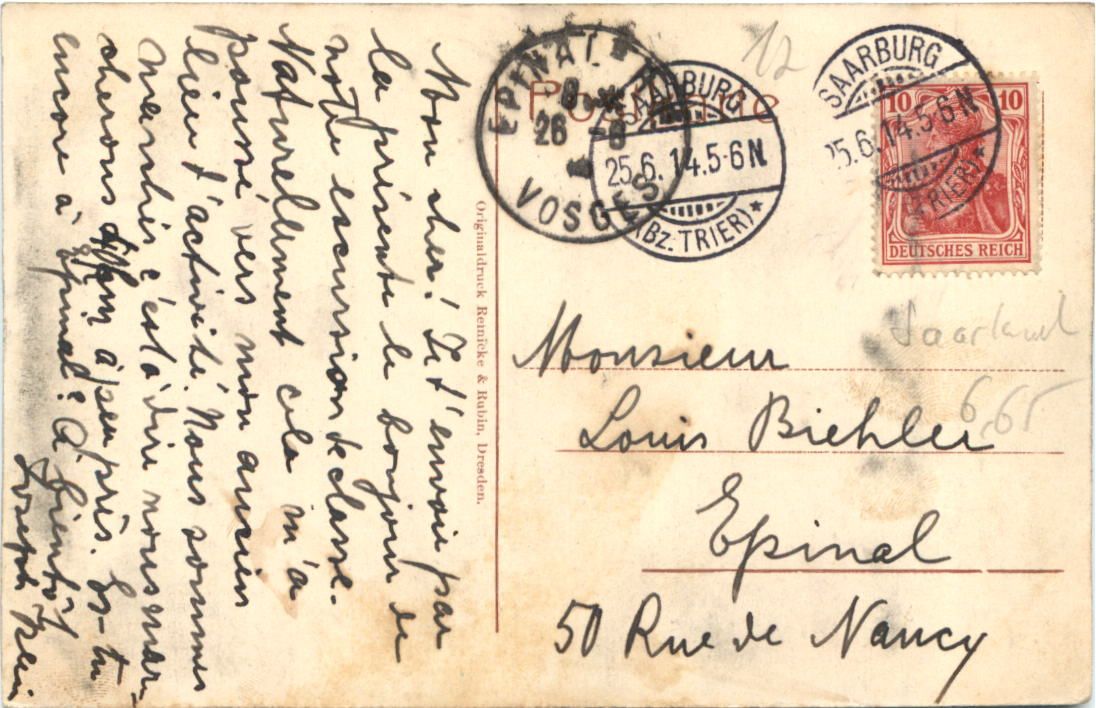 Postkarte
EPINAL
8
26 -6
VOSGES
SAARBURG
25.6.14.5-6N
(BZ. TRIER)*
SAARBURG
25.6.14.5-6N
TRIER)*
10 10
DEUTSCHES REICH
12
Saarland
6,65
Mon cher! Je t'envoie par
la présente le bonjour de
notre escursion de classe.
Naturellement cela m'a
poussé vers mon ancien
lieu d'activité. Nous sommes
marchés c'est à dire nous mar-
cherons à peu près. Es-tu
encore à Epinal? A bientôt
Joseph
Originaldruck Reinicke & Rubin, Dresden.
Monsieur
Louis Biehler
Epinal
50 Rue de Nancy